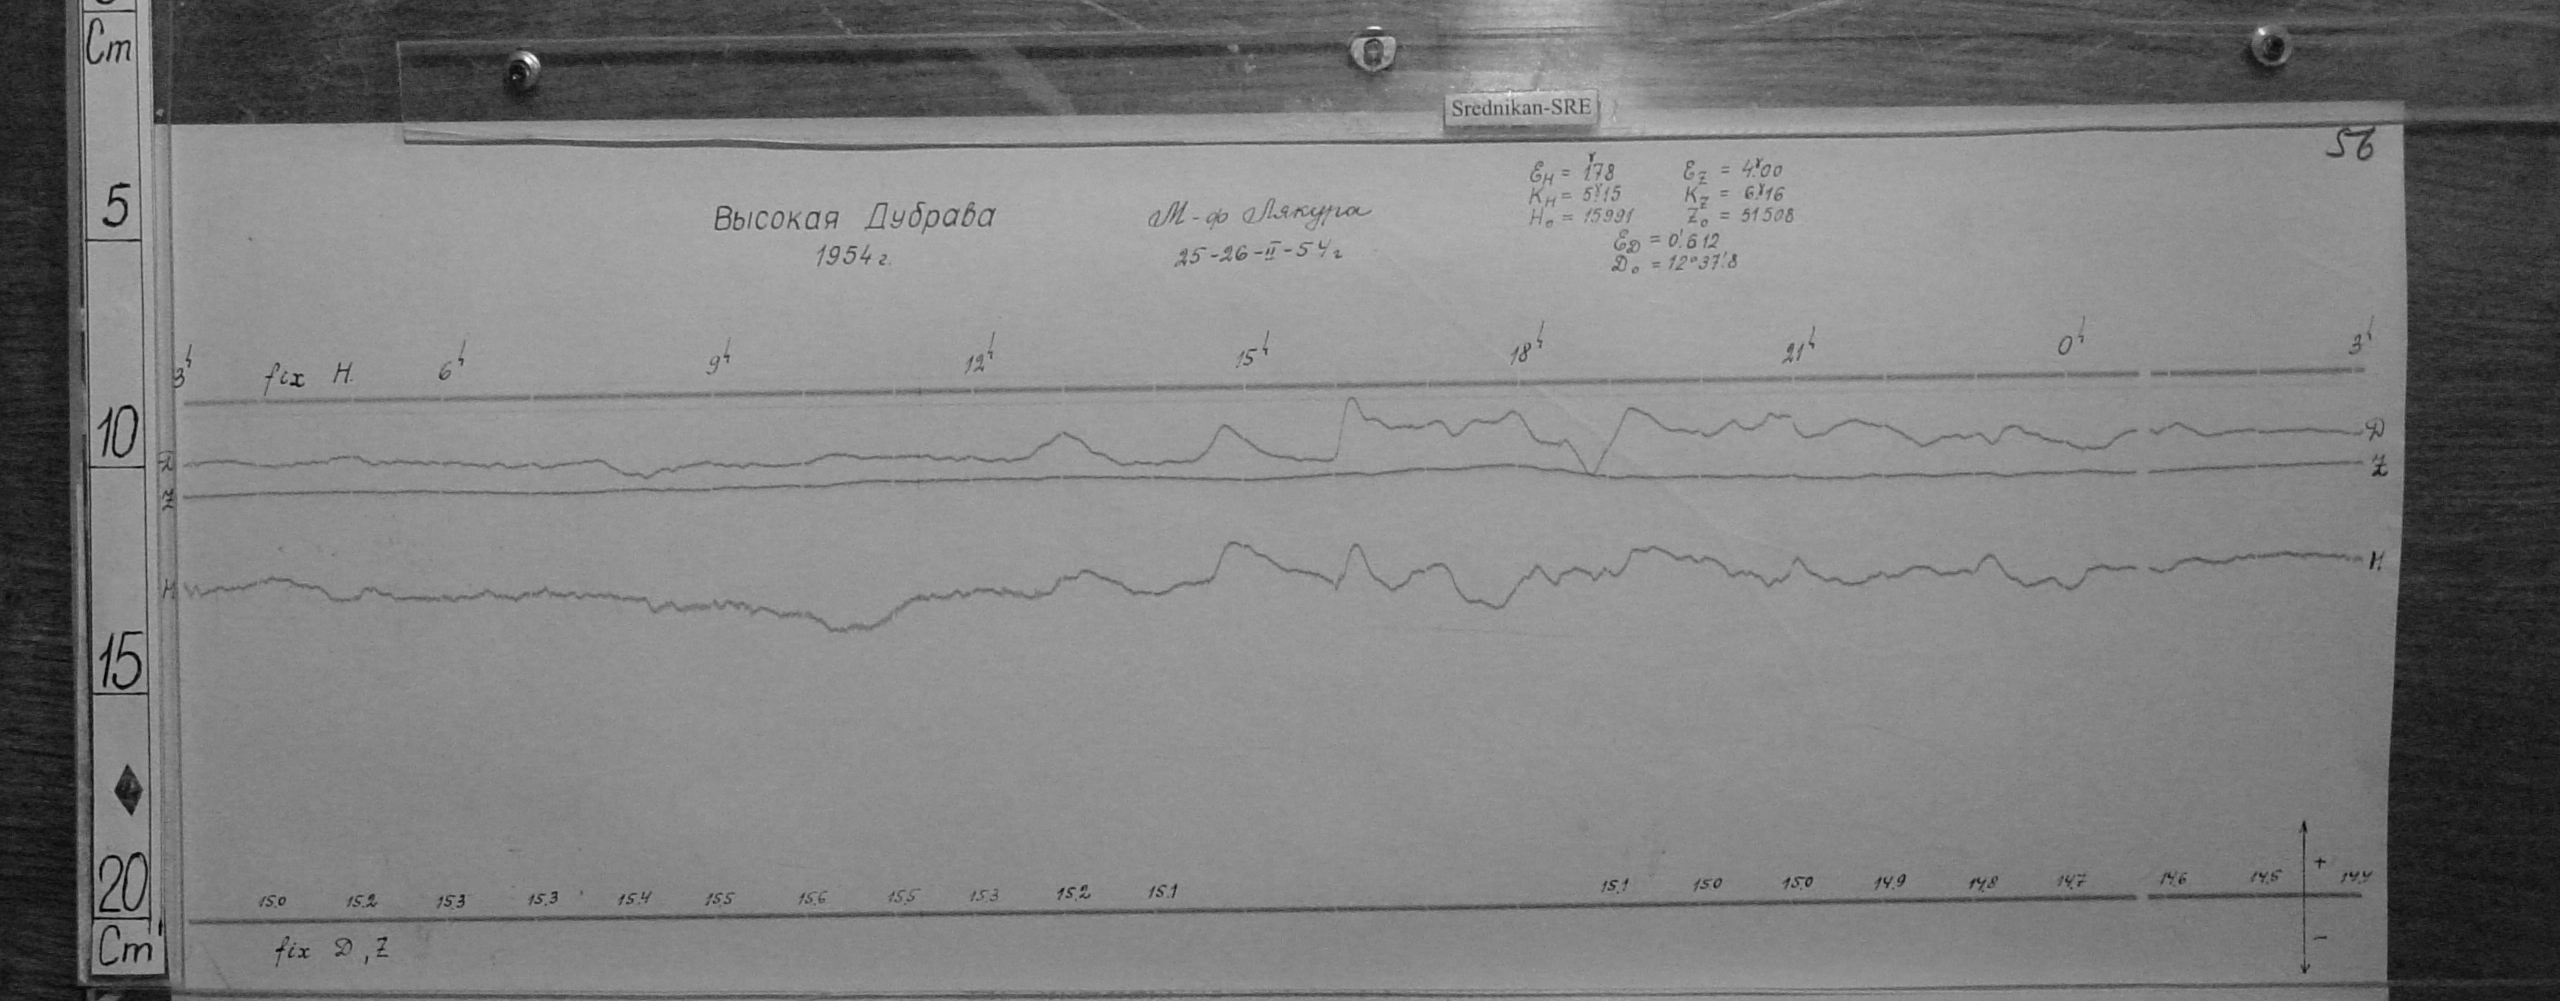 Cm
5
10
15
20
Cm
Srednikan-SRE
56
Высокая Дубрава
1954 г.
М-ф Лякура
25-26-II-54 г
ℰH = 1.ˠ78 ℰZ = 4.ˠ00
KH = 5.ˠ15 KZ = 6.ˠ16
H₀ = 15991 Z₀ = 51508
ℰD = 0.′612
D₀ = 12°37.′8
3ʰ fix H. 6ʰ 9ʰ 12ʰ 15ʰ 18ʰ 21ʰ 0ʰ 3ʰ
D D
Z Z
H H
15.0 15.2 15.3 15.3 15.4 15.5 15.6 15.5 15.3 15.2 15.1 15.1 15.0 15.0 14.9 14.8 14.7 14.6 14.5 14.4
+
−
fix D, Z